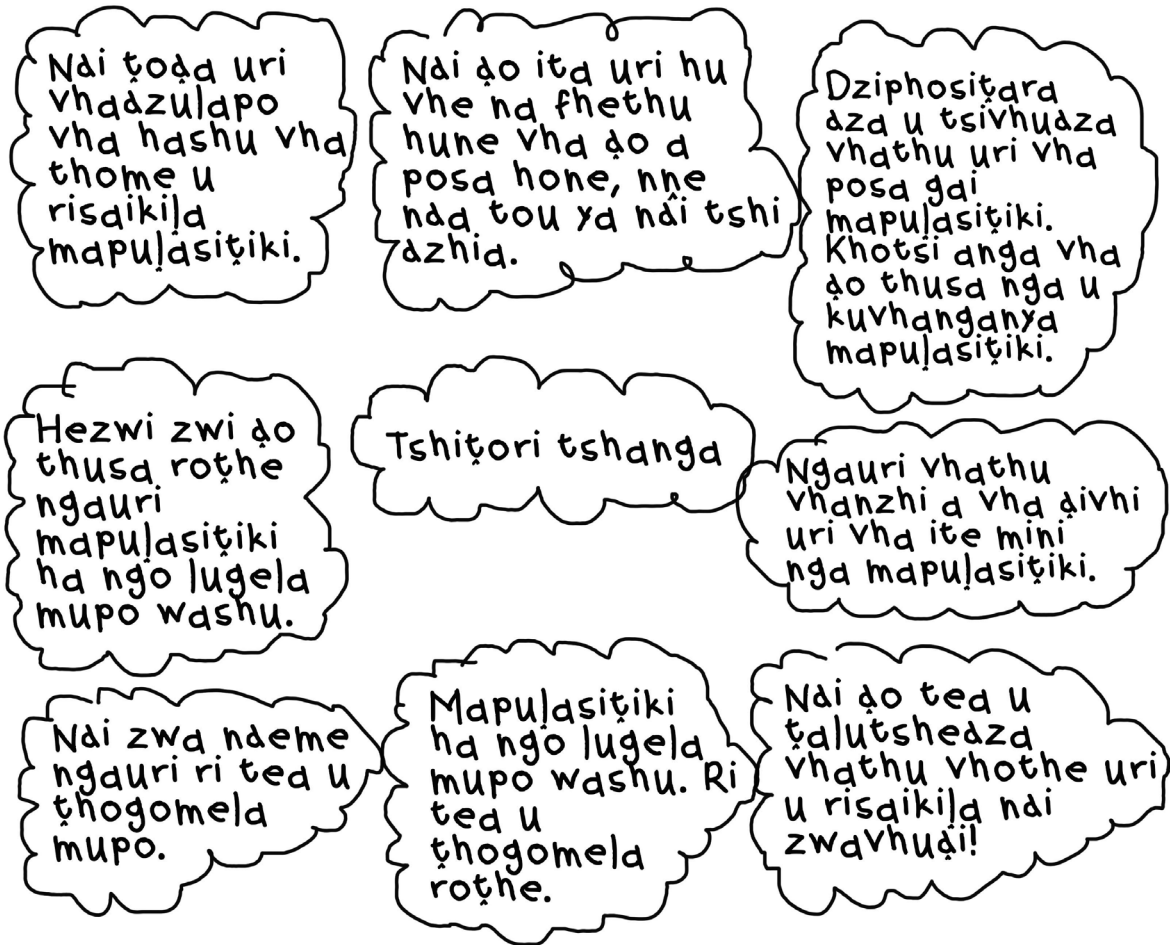 Ndi ṱoḓa uri
vhadzulapo
vha hashu vha
thome u
risaikiḽa
mapuḽasiṱiki.
Ndi ḓo ita uri hu
vhe na fhethu
hune vha ḓo a
posa hone, nṋe
nda tou ya ndi tshi
dzhia.
Dziphosiṱara
dza u tsivhudza
vhathu uri vha
posa gai
mapuḽasiṱiki.
Khotsi anga vha
ḓo thusa nga u
kuvhanganya
mapuḽasiṱiki.
Hezwi zwi ḓo
thusa roṱhe
ngauri
mapuḽasiṱiki
ha ngo lugela
mupo washu.
Tshiṱori tshanga
Ngauri vhathu
vhanzhi a vha ḓivhi
uri vha ite mini
nga mapuḽasiṱiki.
Ndi zwa ndeme
ngauri ri tea u
ṱhogomela
mupo.
Mapuḽasiṱiki
ha ngo lugela
mupo washu. Ri
tea u
ṱhogomela
roṱhe.
Ndi ḓo tea u
ṱalutshedza
vhathu vhothe uri
u risaikiḽa ndi
zwavhuḓi!